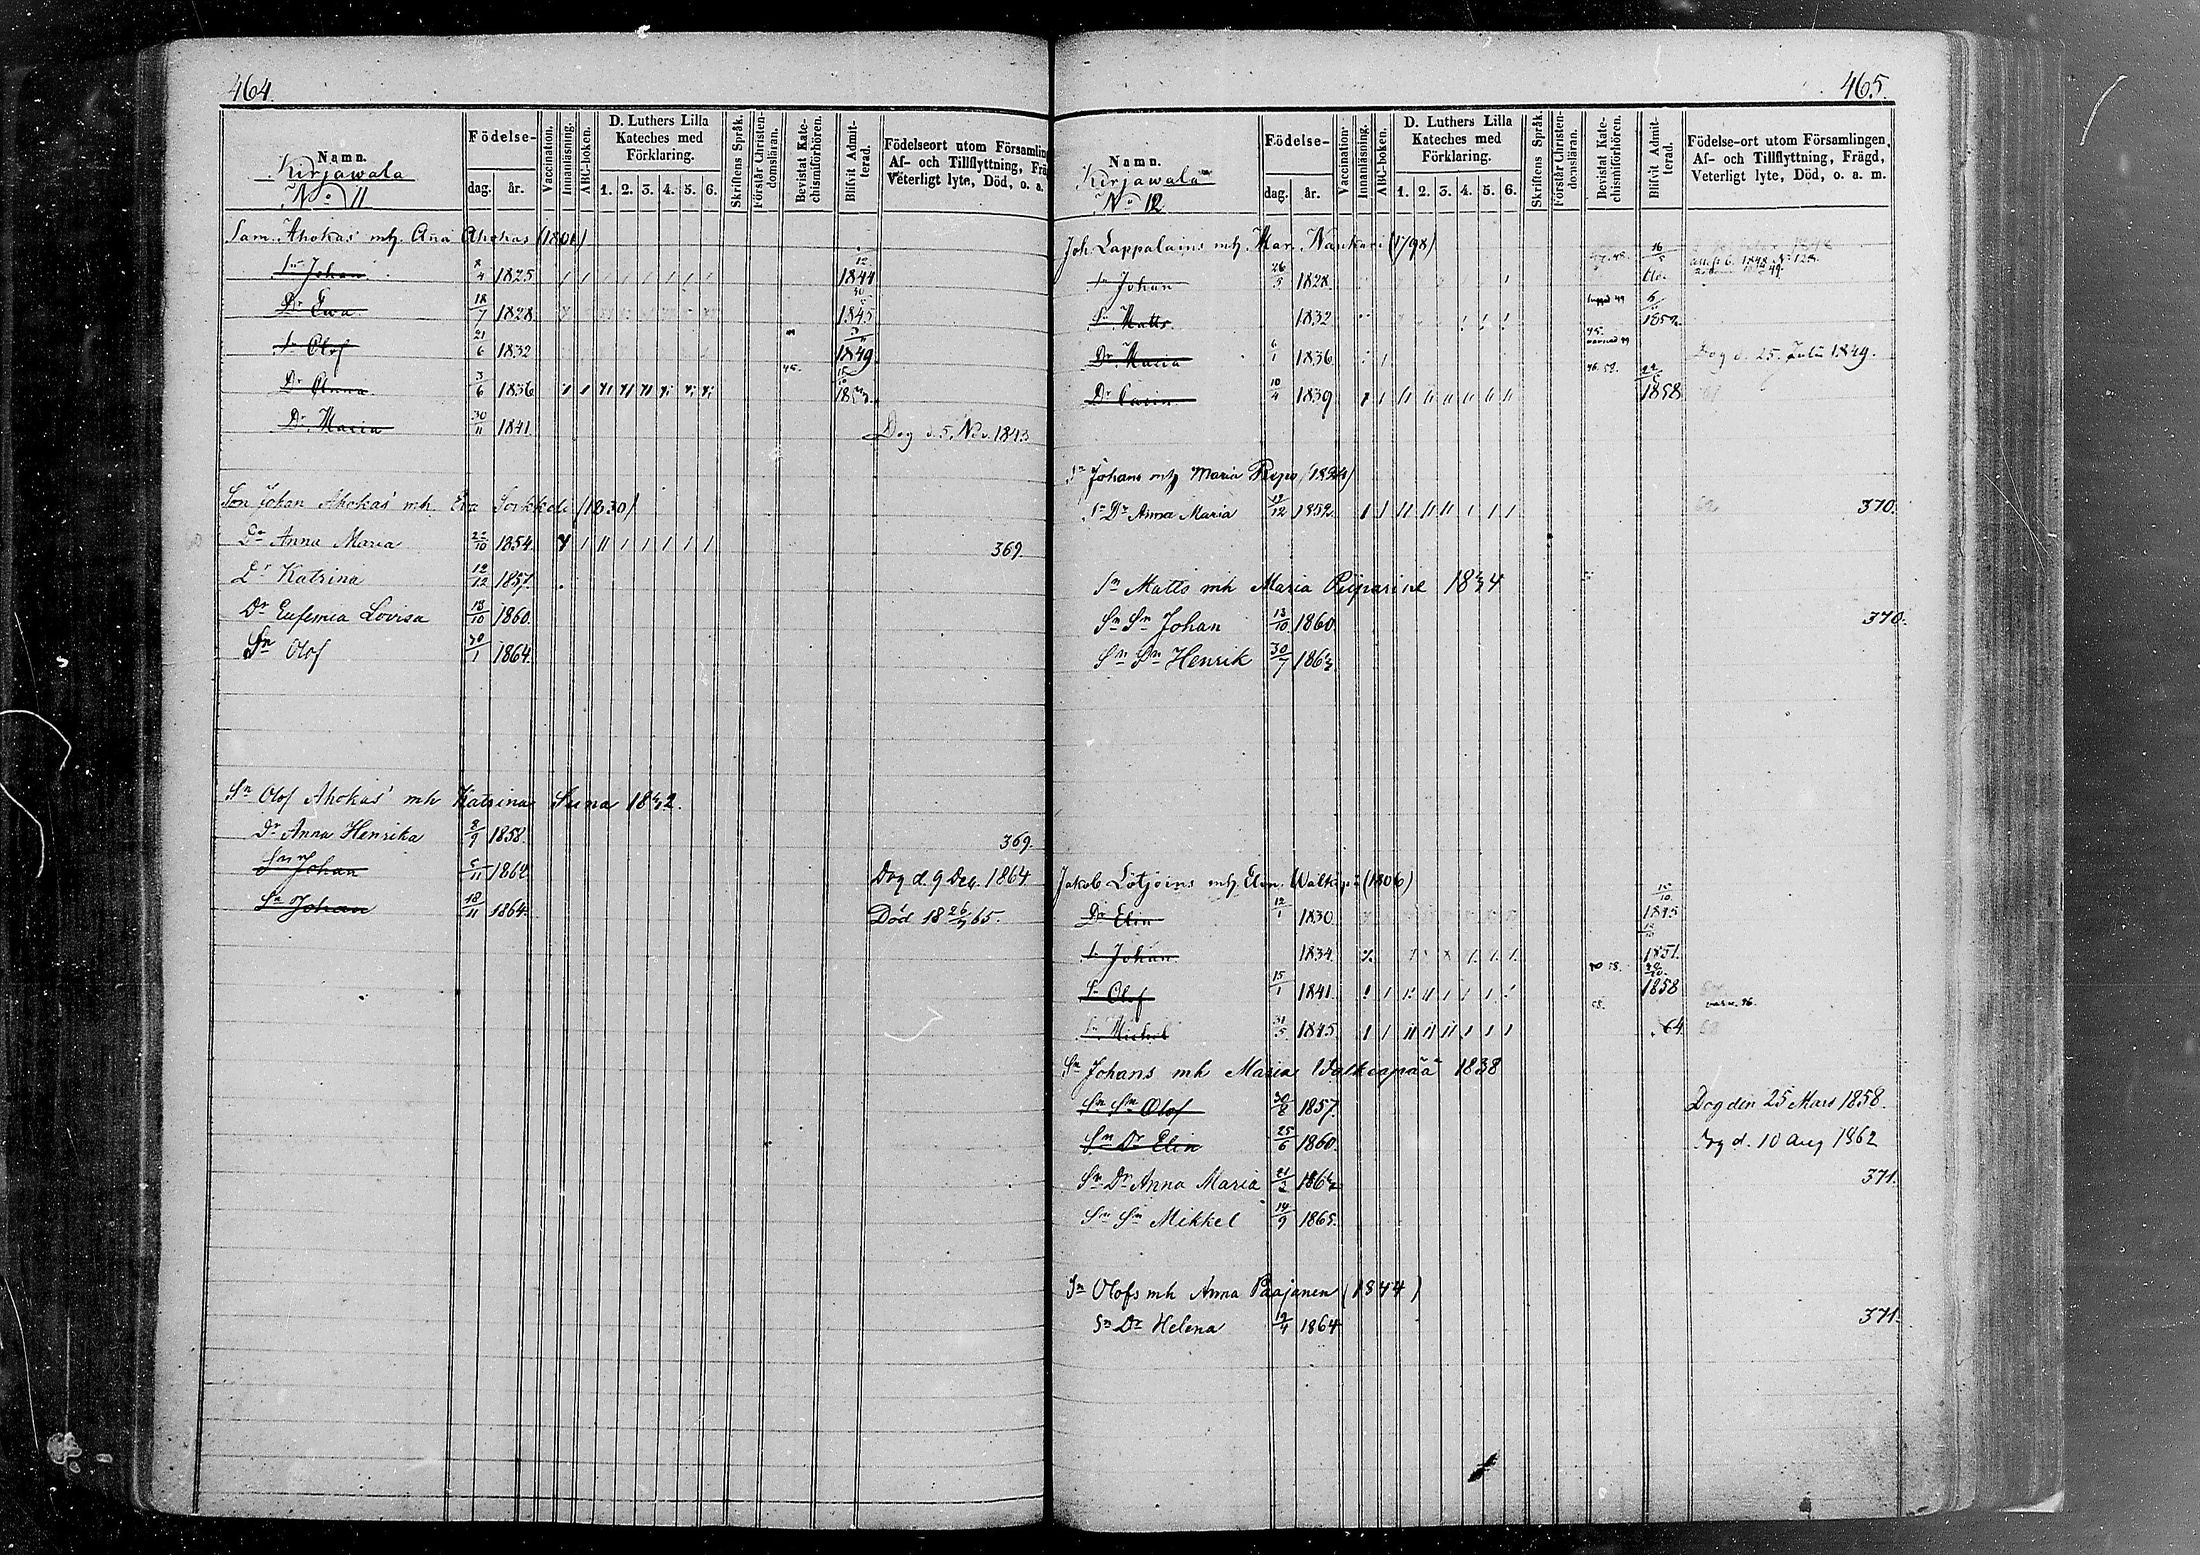 464.
Namn.
Kirjawala
No 11
Födelse-
dag. år.
Vaccination.
Innanläsning.
ABC-boken.
D. Luthers Lilla Kateches med Förklaring.
1. 2. 3. 4. 5. 6.
Skriftens Språk.
Förstår Christendomsläran.
Bevistat Katechismiförhören.
Blifvit Admitterad.
Födelseort utom Församling
Af- och Tillflyttning, Fräg
Veterligt lyte, Död, o. a.
Sam. Ahokas mh. Ana Ahokas (1801)
Sn Johan 8/4 1825 12 1844
Dr Ewa 18/7 1828 30 1845
Sn Olof 21/6 1832 1849
Dr Anna 3/6 1836 45.
Dr Maria 30/11 1841 Dog d. 5. Nov. 1843
Son Johan Ahokas' mh. Eva Sorkkeli (1830)
Dr Anna Maria 1854 369.
Dr Katrina 12/12 1857.
Dr Eufemia Lovisa 18/10 1860
Sn Olof 30/1 1864
Sn Olof Ahokas' mh Katrina Suna
Dr Anna Henrika 8/9 1858. 369.
Sn Johan 5/11 1862 Dog d. 9 Dec. 1864
Sn Johan 18/11 1864 Död 18 26/7 65.
465.
Namn.
Kirjawala
No 12
Födelse-
dag. år.
Vaccination.
Innanläsning.
ABC-boken.
D. Luthers Lilla Kateches med Förklaring.
1. 2. 3. 4. 5. 6.
Skriftens Språk.
Förstår Christendomsläran.
Bevistat Katechismiförhören.
Blifvit Admitterad.
Födelse-ort utom Församlingen,
Af- och Tillflyttning, Frägd,
Veterligt lyte, Död, o. a. m.
Joh. Lappalains mh. Mar. Naukari (1798)
Sn Johan 26/5 1828
Sn Matts 1832 1852
Dr Maria 6/1 1836 Dog d. 25. Juli 1849.
Dr Carin 10/4 1839 1858
Sn Johans mh Maria Repo (1824)
Sn Dr Anna Maria 12/12 1852 370.
Sn Matts mh Maria Piiparine
Sn Sn Johan 13/10 1860 370.
Sn Sn Henrik 30/7
Jakob Lötjöins mh. Elin. Walkipä (1806)
Dr Elin 12/1 1830 15/10 1845
Sn Johan 1834 1851.
Sn Olof 15/1 1841 1858
Sn Michel 31/5 1845 64
Sn Johans mh Maria Walkiapää 1838
Sn Sn Olof 30/8 1857. Dog den 25 Mars 1858.
Sn Dr Elin 25/6 1860 Dog d. 10 Aug 1862
Sn Dr Anna Maria 21/2 371.
Sn Sn Mikkel 14/9 1865.
Sn Olofs mh Anna Paajanen (1844)
Sn Dr Helena 19/4 1864 371.